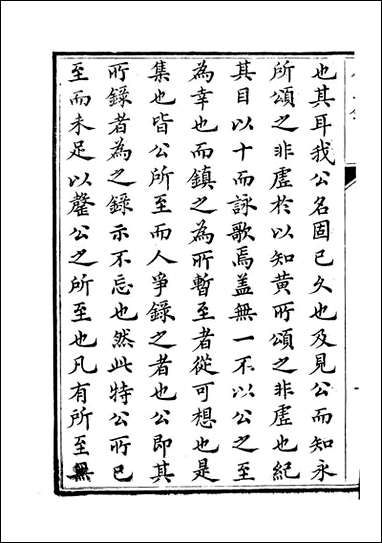 也其耳我公名固已久也及見公而知永
所頌之非虛於以知黃所頌之非虛也紀
其目以十而詠歌焉蓋無一不以公之至
為幸也而鎮之為所暫至者從可想也是
集也皆公所至而人爭錄之者也公即其
所錄者為之錄示不忘也然此特公所已
至而未足以罄公之所至也凡有所至無